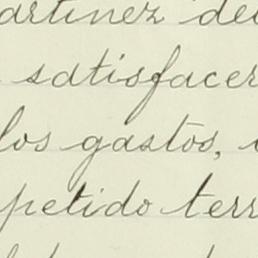 artinez de
satisfacer
los gastos,
petido terr